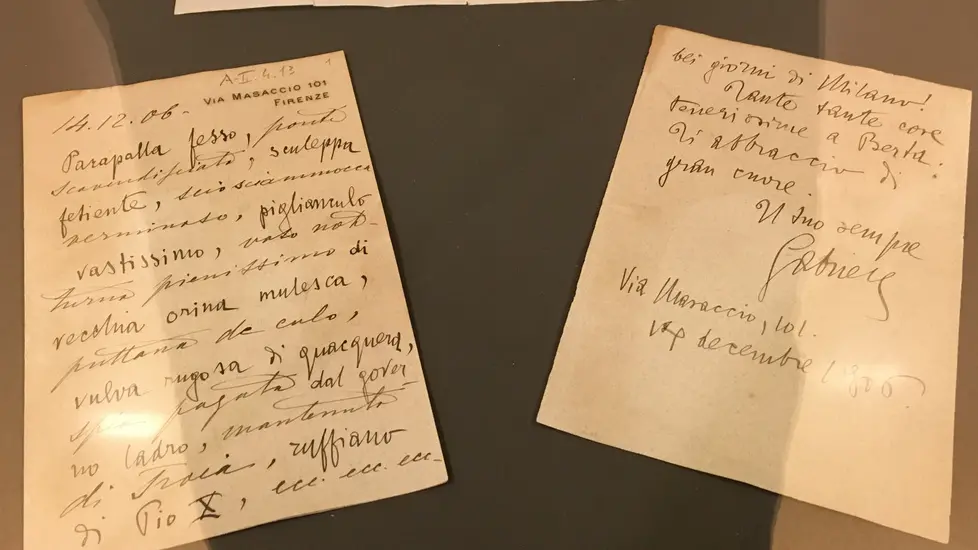 A-II.4.13
1
VIA MASACCIO 101
FIRENZE
14.12.06.
Parapalla fesso, ponte
scarendifunto, sculeppa
fetiente, sciosciammocca
verminoso, piglianculo
vastissimo, vaso not-
turno pienissimo di
vecchia orina mulesca,
puttana de culo,
vulva rugosa di quacquera,
spia pagata dal gover-
no ladro, mantenuto
di Troia, ruffiano
di Pio X, ecc. ecc. ecc-
bei giorni di Milano!
Tante tante cose
tenerissime a Berta.
Ti abbraccio di
gran cuore.
Il tuo sempre
Gabriele
Via Masaccio, 101.
14 decembre 1906.